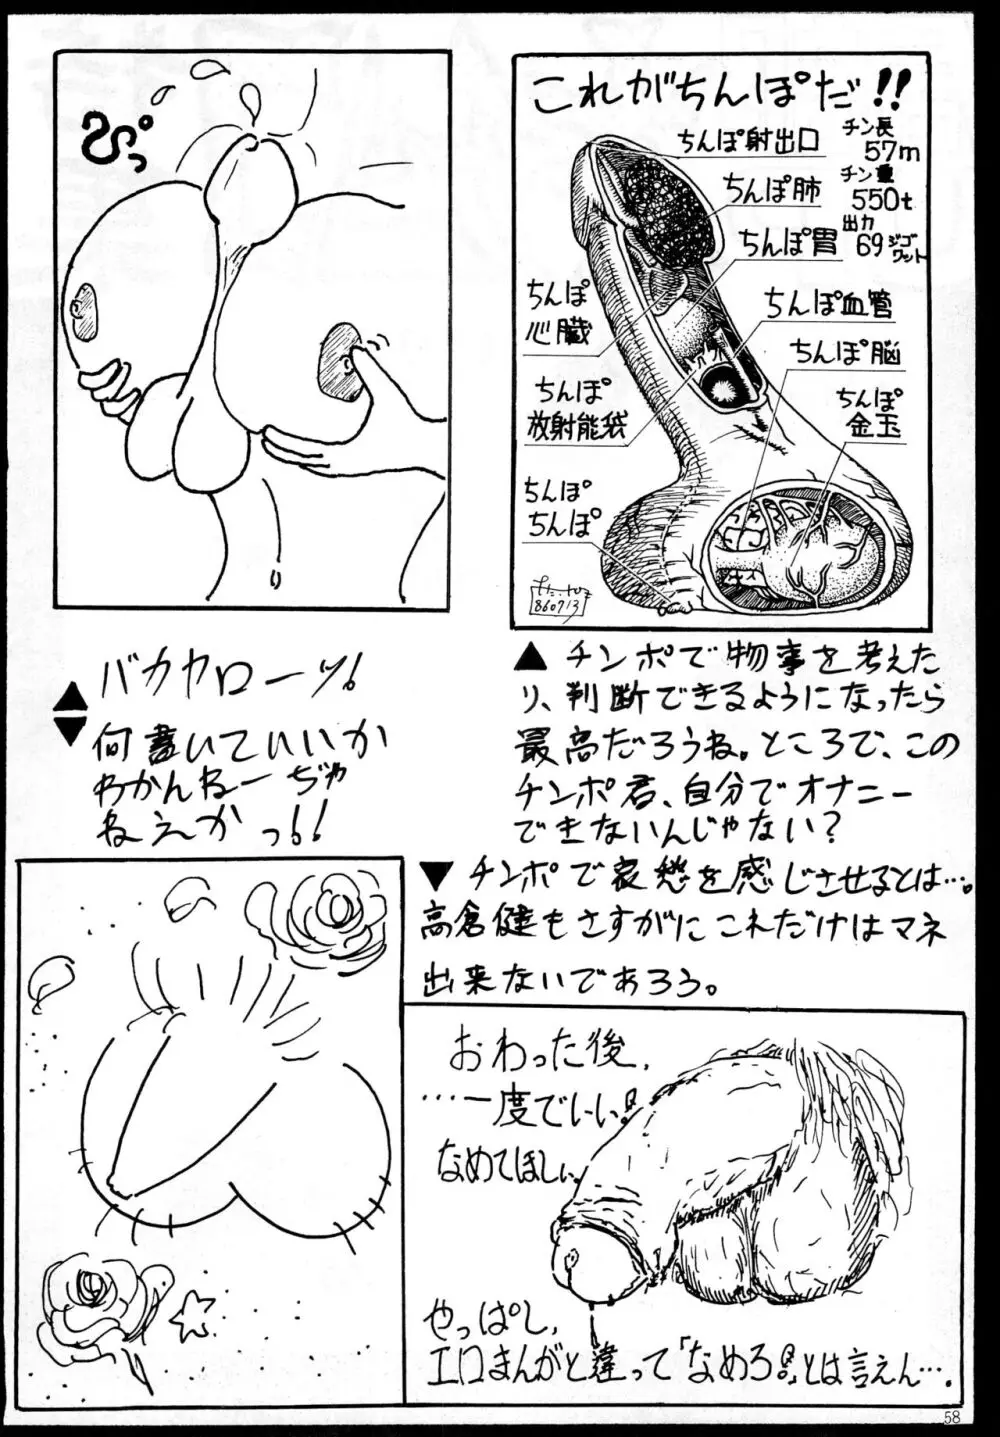 ぴっ
これがちんぽだ!!
ちんぽ射出口
チン長
57m
チン重
550t
出力
69ジゴワット
ちんぽ肺
ちんぽ胃
ちんぽ
心臓
ちんぽ血管
ちんぽ脳
ちんぽ
放射能袋
ちんぽ
金玉
ちんぽ
ちんぽ
860713
▲チンポで物事を考えた
り、判断できるようになったら
最高だろうね。ところで、この
チンポ君、自分でオナニー
できないんじゃない?
バカヤローッ!
何書いていいか
わかんねーぢゃ
ねえかっ!!
▼チンポで哀愁を感じさせるとは…。
高倉健もさすがにこれだけはマネ
出来ないであろう。
おわった後、
…一度でいい!
なめてほしい、
やっぱし、
エロまんがと違って「なめろ!」とは言えん…。
58